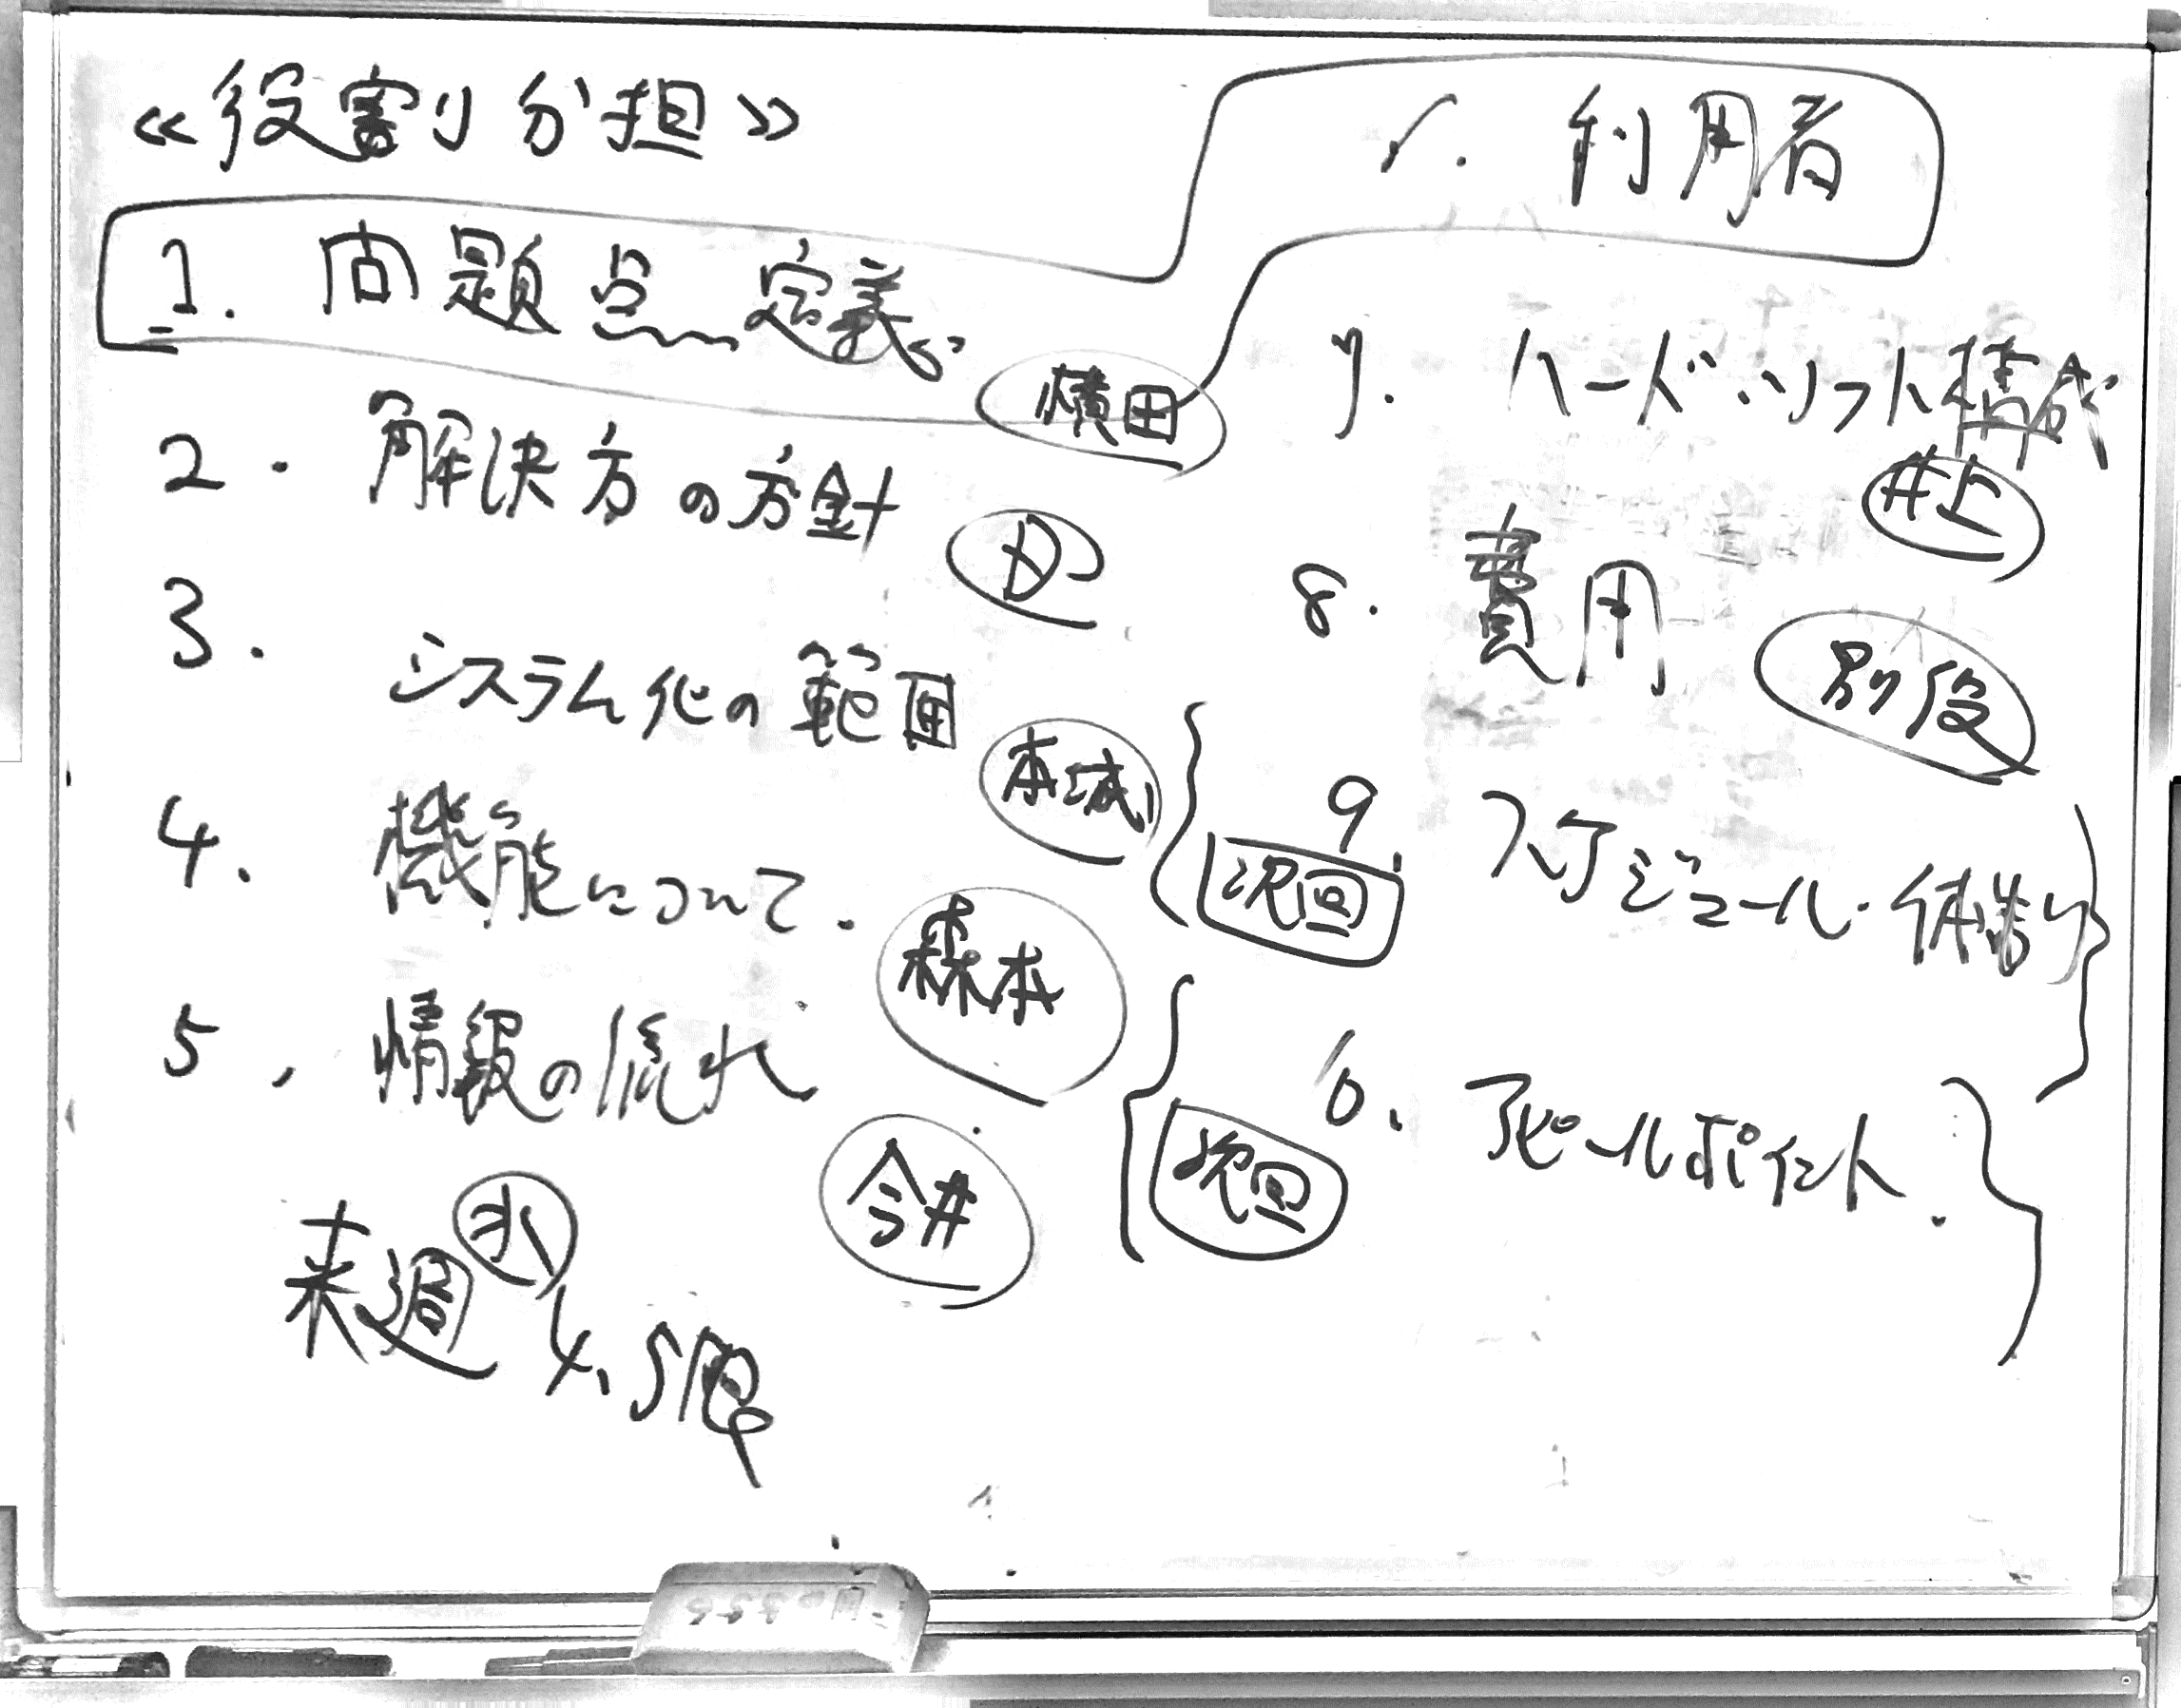 ≪役割分担≫
1. 問題点 定義
横田
2. 解決方の方針
3. システム化の範囲
本城
4. 機能について.
森本
5. 情報の流れ
今井
来週 水 4、5限
利用者
7. ハード・ソフト構成
井上
8. 費用
別役
9. スケジュール・体制
次回
アピールポイント.
次回